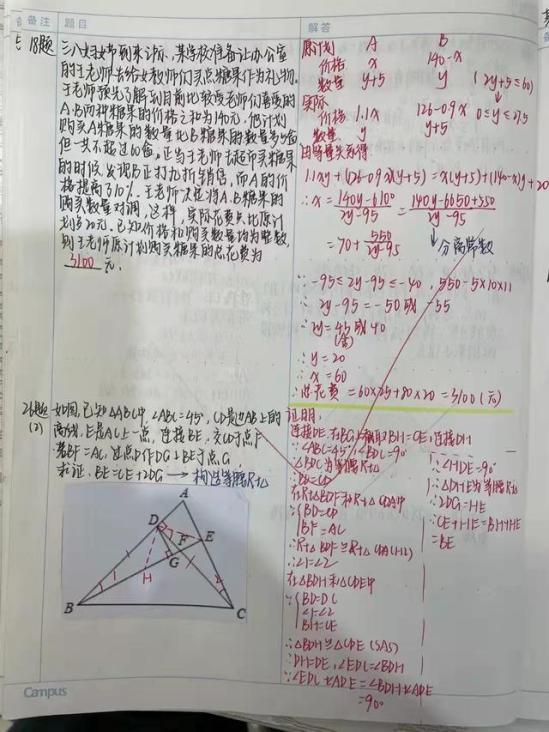 备注 题目
18题 三八妇女节到来之际,某学校准备让办公室
的王老师去给女教师们买点糖果作为礼物,
王老师预先了解到目前比较受老师们喜爱的
A、B两种糖果的价格之和为140元,他计划
购买A种糖果的数量比B糖果的数量多5盒
但一共不超过60盒,正当王老师去超市买糖果
的时候,发现B正打九折销售,而A的价
格提高了10%,王老师决定将A、B糖果的
购买数量对调,这样,实际花费只比原计
划多20元,已知价格和购买数量均为整数,
则王老师原计划购买糖果的总花费为
3100 元.
26题 如图,已知△ABC中,∠ABC=45°,CD是边AB上的
(2) 高线,E是AC上一点,连接BE,交CD于点F
若BF=AC,过点D作DG⊥BE于点G
求证:BE=CE+2DG → 构造等腰Rt△
A
D
E
F
G
H
B
C
1
2
Campus
解答
原计划 A B
价格 x 140-x
数量 y+5 y (2y+5≤60)
实际
价格 1.1x 126-0.9x 0≤y≤27.5
数量 y y+5
1.1xy+(126-0.9x)(y+5)=x(y+5)+(140-x)y+20
=70+550/2y-95
分离常数
∴-95≤2y-95≤-40,550=5×10×11
∴2y-95=-50或-55
∴2y=45或40
(舍)
∴y=20
∴x=60
∴总花费=60×25+80×20=3100(元)
证明:
连接DE,在BG上截取BH=CE,连接DH
∵∠ABC=45°,∠BDC=90°
∴△BDC为等腰Rt△
∴BD=CD
在Rt△BDF和Rt△CDA中
∵BD=CD
BF=AC
∴Rt△BDF≌Rt△CDA(HL)
∴∠1=∠2
在△BDH和△CDE中
∵BD=DC
∠1=∠2
BH=CE
∴△BDH≌△CDE(SAS)
∴DH=DE,∠EDC=∠BDH
∵∠EDC+∠ADE=∠BDH+∠ADE
=90°
∴∠HDE=90°
∴△DHE为等腰Rt△
∴2DG=HE
∵CE+HE=BH+HE
=BE